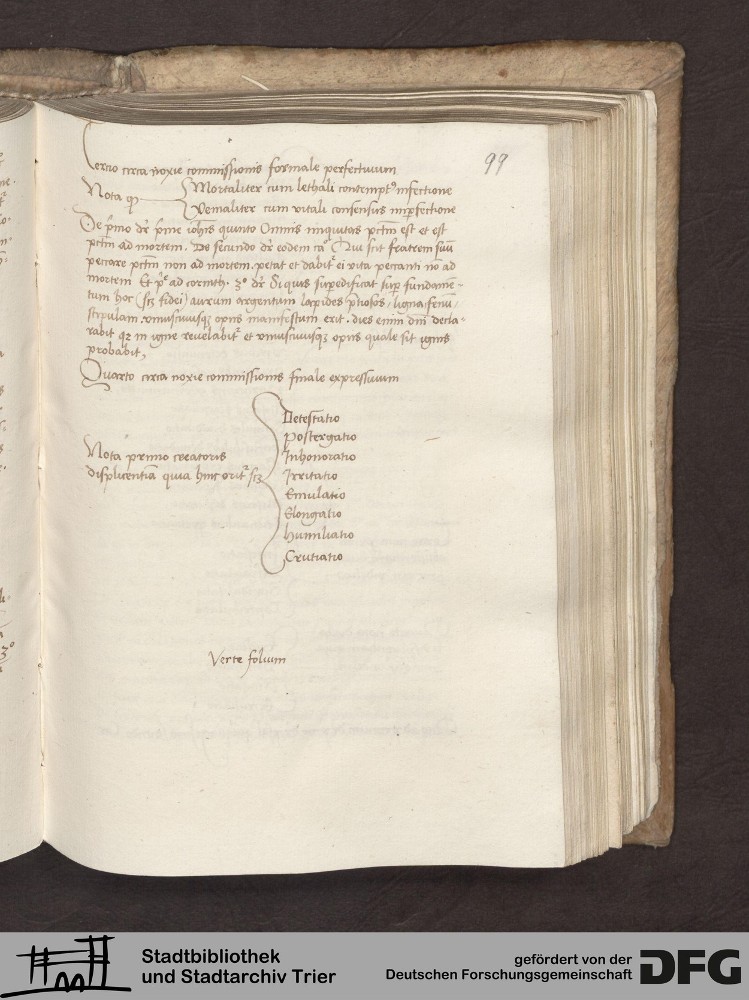 99
Tercio circa noxie commissionis formale perfectiuum
Nota qꝫ Mortaliter cum lethali contemptꝰ infectione
Venialiter cum vitali consensus imꝑfectione
De pͥmo dr̄ pͥme iohīs quinto Omnis iniquitas pctm̄ est et est
pctm̄ ad mortem. De secundo dr̄ eodem caᵒ Qui scit fratrem suū
peccare pctm̄ non ad mortem. petat et dabitʳ ei vita peccanti nō ad
mortem Et pͥᵉ ad corinth. 3ᵒ dr̄ Si quis suꝑedificat suꝑ fundamen-
tum hoc (scꝫ fidei) aurum argentum lapides p̄tiosos, ligna, fenū,
stipulam. vniuscuiusqꝫ opus manifestum erit. dies enim dnī decla-
rabit qꝛ in igne reuelabitʳ et vniuscuiusqꝫ opus quale sit ignis
probabit,
Quarto circa noxie commissionis finale expressiuum
Nota primo creatoris
displicentiā quia hinc oritʳ scꝫ
Detestatio
Postergatio
Inhonoratio
Irritatio
Emulatio
Elongatio
Humiliatio
Crutiatio
Verte folium
Stadtbibliothek
und Stadtarchiv Trier
gefördert von der
Deutschen Forschungsgemeinschaft
DFG